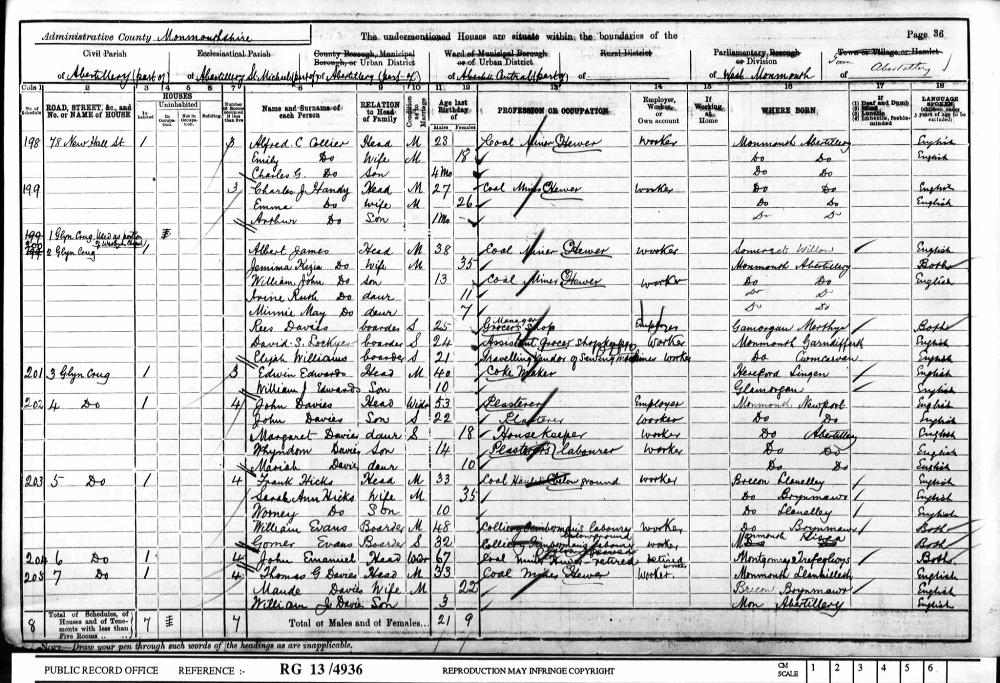 Administrative County Monmouthshire The undermentioned Houses are situate within the boundaries of the Page 36
Civil Parish Ecclesiastical Parish County Borough, Municipal Borough, or Urban District Ward of Municipal Borough or of Urban District Rural District Parliamentary Borough or Division Town or Village or Hamlet
of Abertillery (part of) of Abertillery St Michael (part of) of Abertillery (part of) of Central (part of) of of West Monmouth of Abertillery
Cols 1 2 3 4 5 6 7 8 9 10 11 12 13 14 15 16 17 18
No. of Schedule ROAD, STREET, &c., and No. or NAME of HOUSE HOUSES Inhabited Uninhabited In Occupation Not in Occupation Building Name and Surname of each Person RELATION to Head of Family Condition as to Marriage Age last Birthday of Males Females PROFESSION OR OCCUPATION Employer, Worker, or Own account If Working at Home WHERE BORN If (1) Deaf and Dumb (2) Blind (3) Lunatic (4) Imbecile, feeble-minded LANGUAGE SPOKEN
198 78 New Hall St 1 3 Alfred C Collier Head M 23 Coal Miner Hewer Worker Monmouth Abertillery English
Emily Do Wife M 18 Do Do English
Charles G. Do Son 4 Mo Do Do
199 3 Charles J Handy Head M 27 Coal Miner Hewer Worker Do Do English
Emma Do Wife M 26 Do Do English
Arthur Do Son 1 Mo Do Do
199 1 Glyn Crug Used as portion of
200 2 Glyn Crug 1 Albert James Head M 38 Coal Miner Hewer Worker Somerset English
Jemima Kezia Do Wife M 35 Monmouth Abertillery Both
William John Do Son 13 Coal Miner Hewer Worker Do Do English
Ruth Do daur 11 Do Do
Minnie May Do daur 7 Do Do
Rees Davies boarder S 25 Manager Grocer's Shop Employer Merthyr Both
David S. Lockyer boarder S 24 Assistant Grocer Shopkeeper Worker Monmouth English
Elijah Williams boarder S 21 Travelling Vendor of Sewing Worker Do English
201 3 Glyn Crug 1 3 Edwin Edwards Head M 40 Coke Maker Hereford Lingen English
William J Edwards Son 10 Glamorgan English
202 4 Do 1 4 John Davies Head Widr 53 Plasterer Employer Monmouth Newport English
John Davies Son S 22 Plasterer Worker Do Do English
Margaret Davies daur S 18 House Keeper Worker Do Abertillery English
Whyndom Davies Son 14 Plasterers labourer Worker Do Do English
Mariah Davies daur 10 Do Do English
203 5 Do 1 4 Frank Hicks Head M 33 Coal ground Worker Brecon Llanelley English
Sarah Ann Hicks Wife M 35 Do Brynmawr English
Do Son 10 Do Llanelley English
William Evans Boarder M 48 Colliery labourer Worker Do Brynmawr Both
Gomer Evans Boarder S 32 Colliery labourer Worker Monmouth Risca Both
204 6 Do 1 4 John Emanuel Head Widr 67 Coal Miner retired retired Montgomery Both
205 7 Do 1 4 Thomas G Davies Head M 33 Coal Miner Hewer Worker Monmouth Llanhilleth English
Maude Davies Wife M 22 Brecon Brynmawr English
William J. Davies Son 3 Mon Abertillery English
8 Total of Schedules, of Houses and of Tenements with less than Five Rooms 7 7 Total of Males and of Females... 21 9
NOTE—Draw your pen through such words of the headings as are inapplicable.
PUBLIC RECORD OFFICE REFERENCE :- RG 13/4936 REPRODUCTION MAY INFRINGE COPYRIGHT CM SCALE 1 2 3 4 5 6